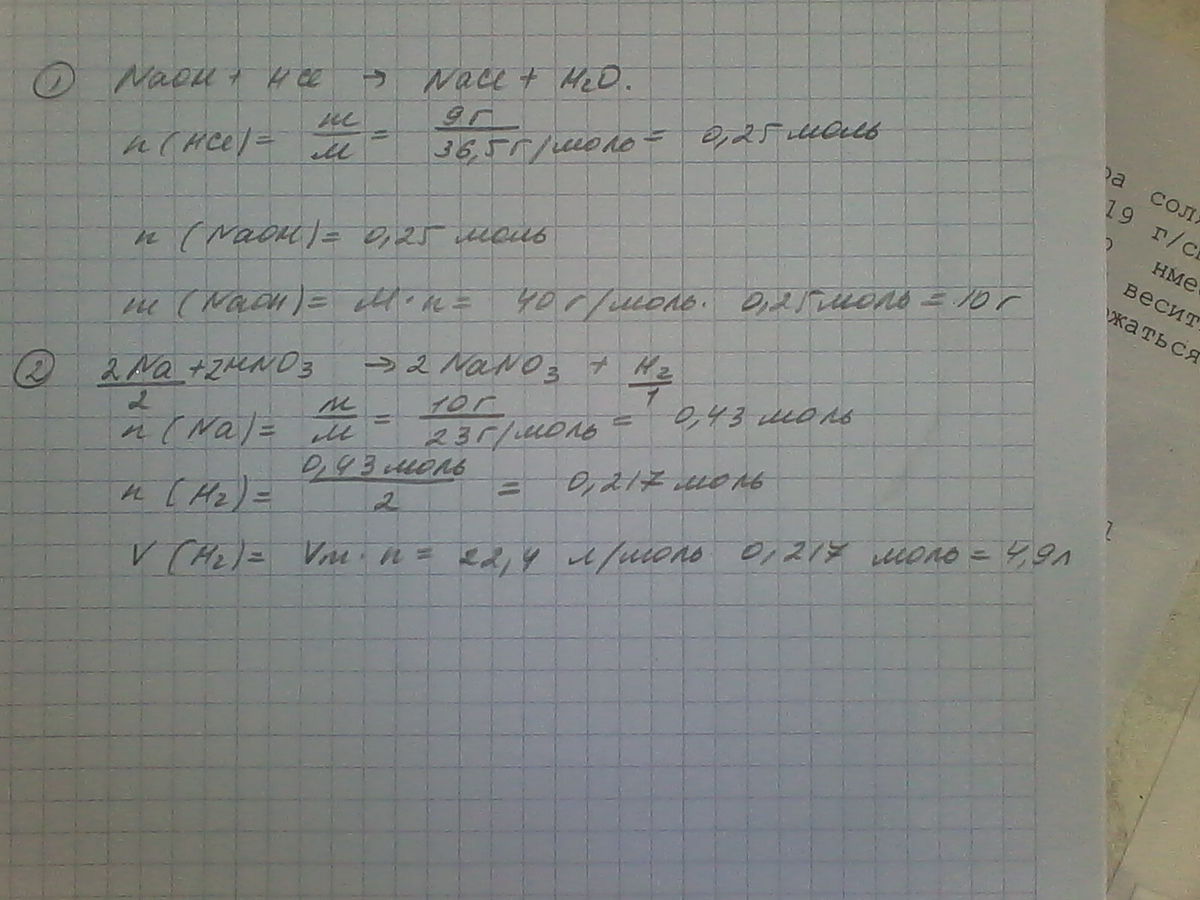 ① NaOH + HCl → NaCl + H₂O.
n (HCl) = m/M = 9г/36,5г/моль = 0,25 моль
n (NaOH) = 0,25 моль
m (NaOH) = M · n = 40 г/моль · 0,25 моль = 10 г
② 2Na/2 + 2HNO₃ → 2 NaNO₃ + H₂/1
n (Na) = m/M = 10г/23г/моль = 0,43 моль
n (H₂) = 0,43 моль/2 = 0,217 моль
V (H₂) = Vm · n = 22,4 л/моль 0,217 моль = 4,9л
19 г/с
весит
жаться